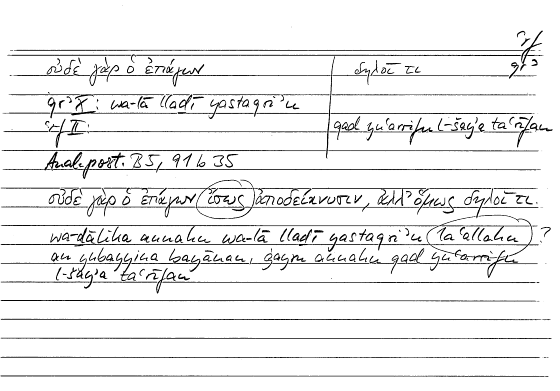 ʿrf
οὐδὲ γὰρ ὁ ἐπάγων | δηλοῖ τι qrʾ
qrʾ X: wa-lā lladī yastaqriʾu
ʿrf II: | qad yuʿarrifu l-šayʾa taʿrīfan
Anal. post. B5, 91 b 35
οὐδὲ γὰρ ὁ ἐπάγων ἴσως ἀποδείκνυσιν, ἀλλ' ὅμως δηλοῖ τι.
wa-dālika annahu wa-lā lladī yastaqriʾu laʿallahu ?
an yubayyina bayānan, ġayra annahu qad yuʿarrifu
l-šayʾa taʿrīfan